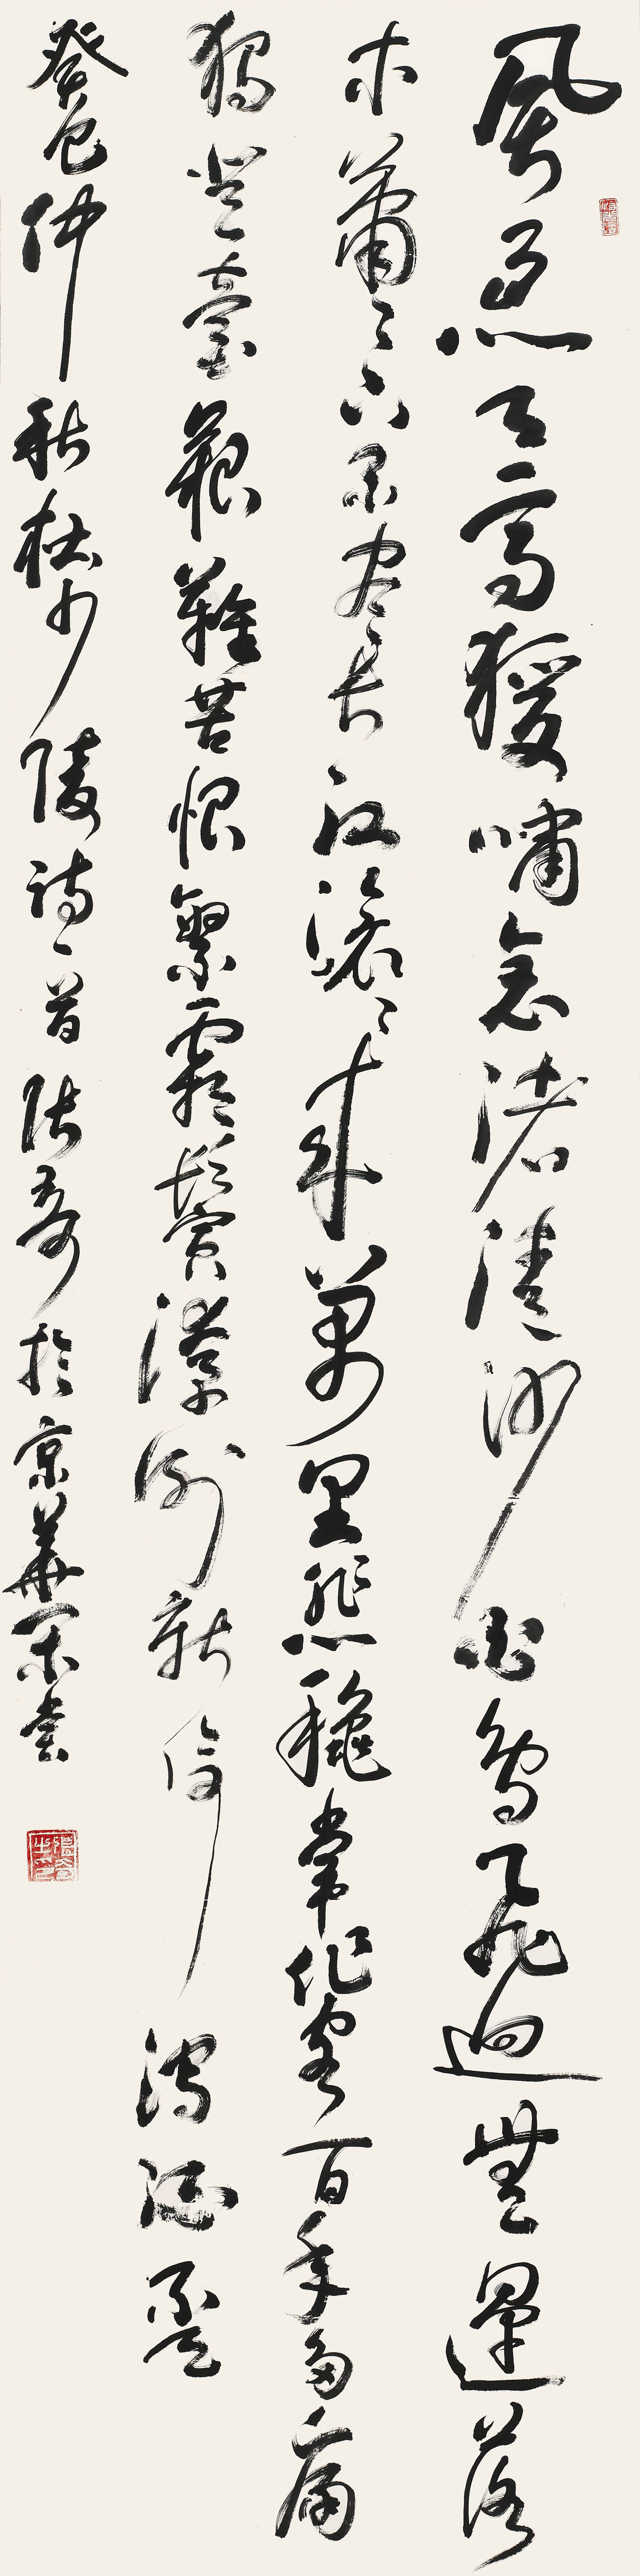 風急天高猨嘯哀渚清沙白鳥飛迴無邊落
木蕭〻下不盡長江滾〻來萬里悲穐常作客百年多病
獨登臺艱難苦恨繁霜鬢潦倒新停濁酒盃
癸巳仲秋杜少陵詩一首張奇於京華堂